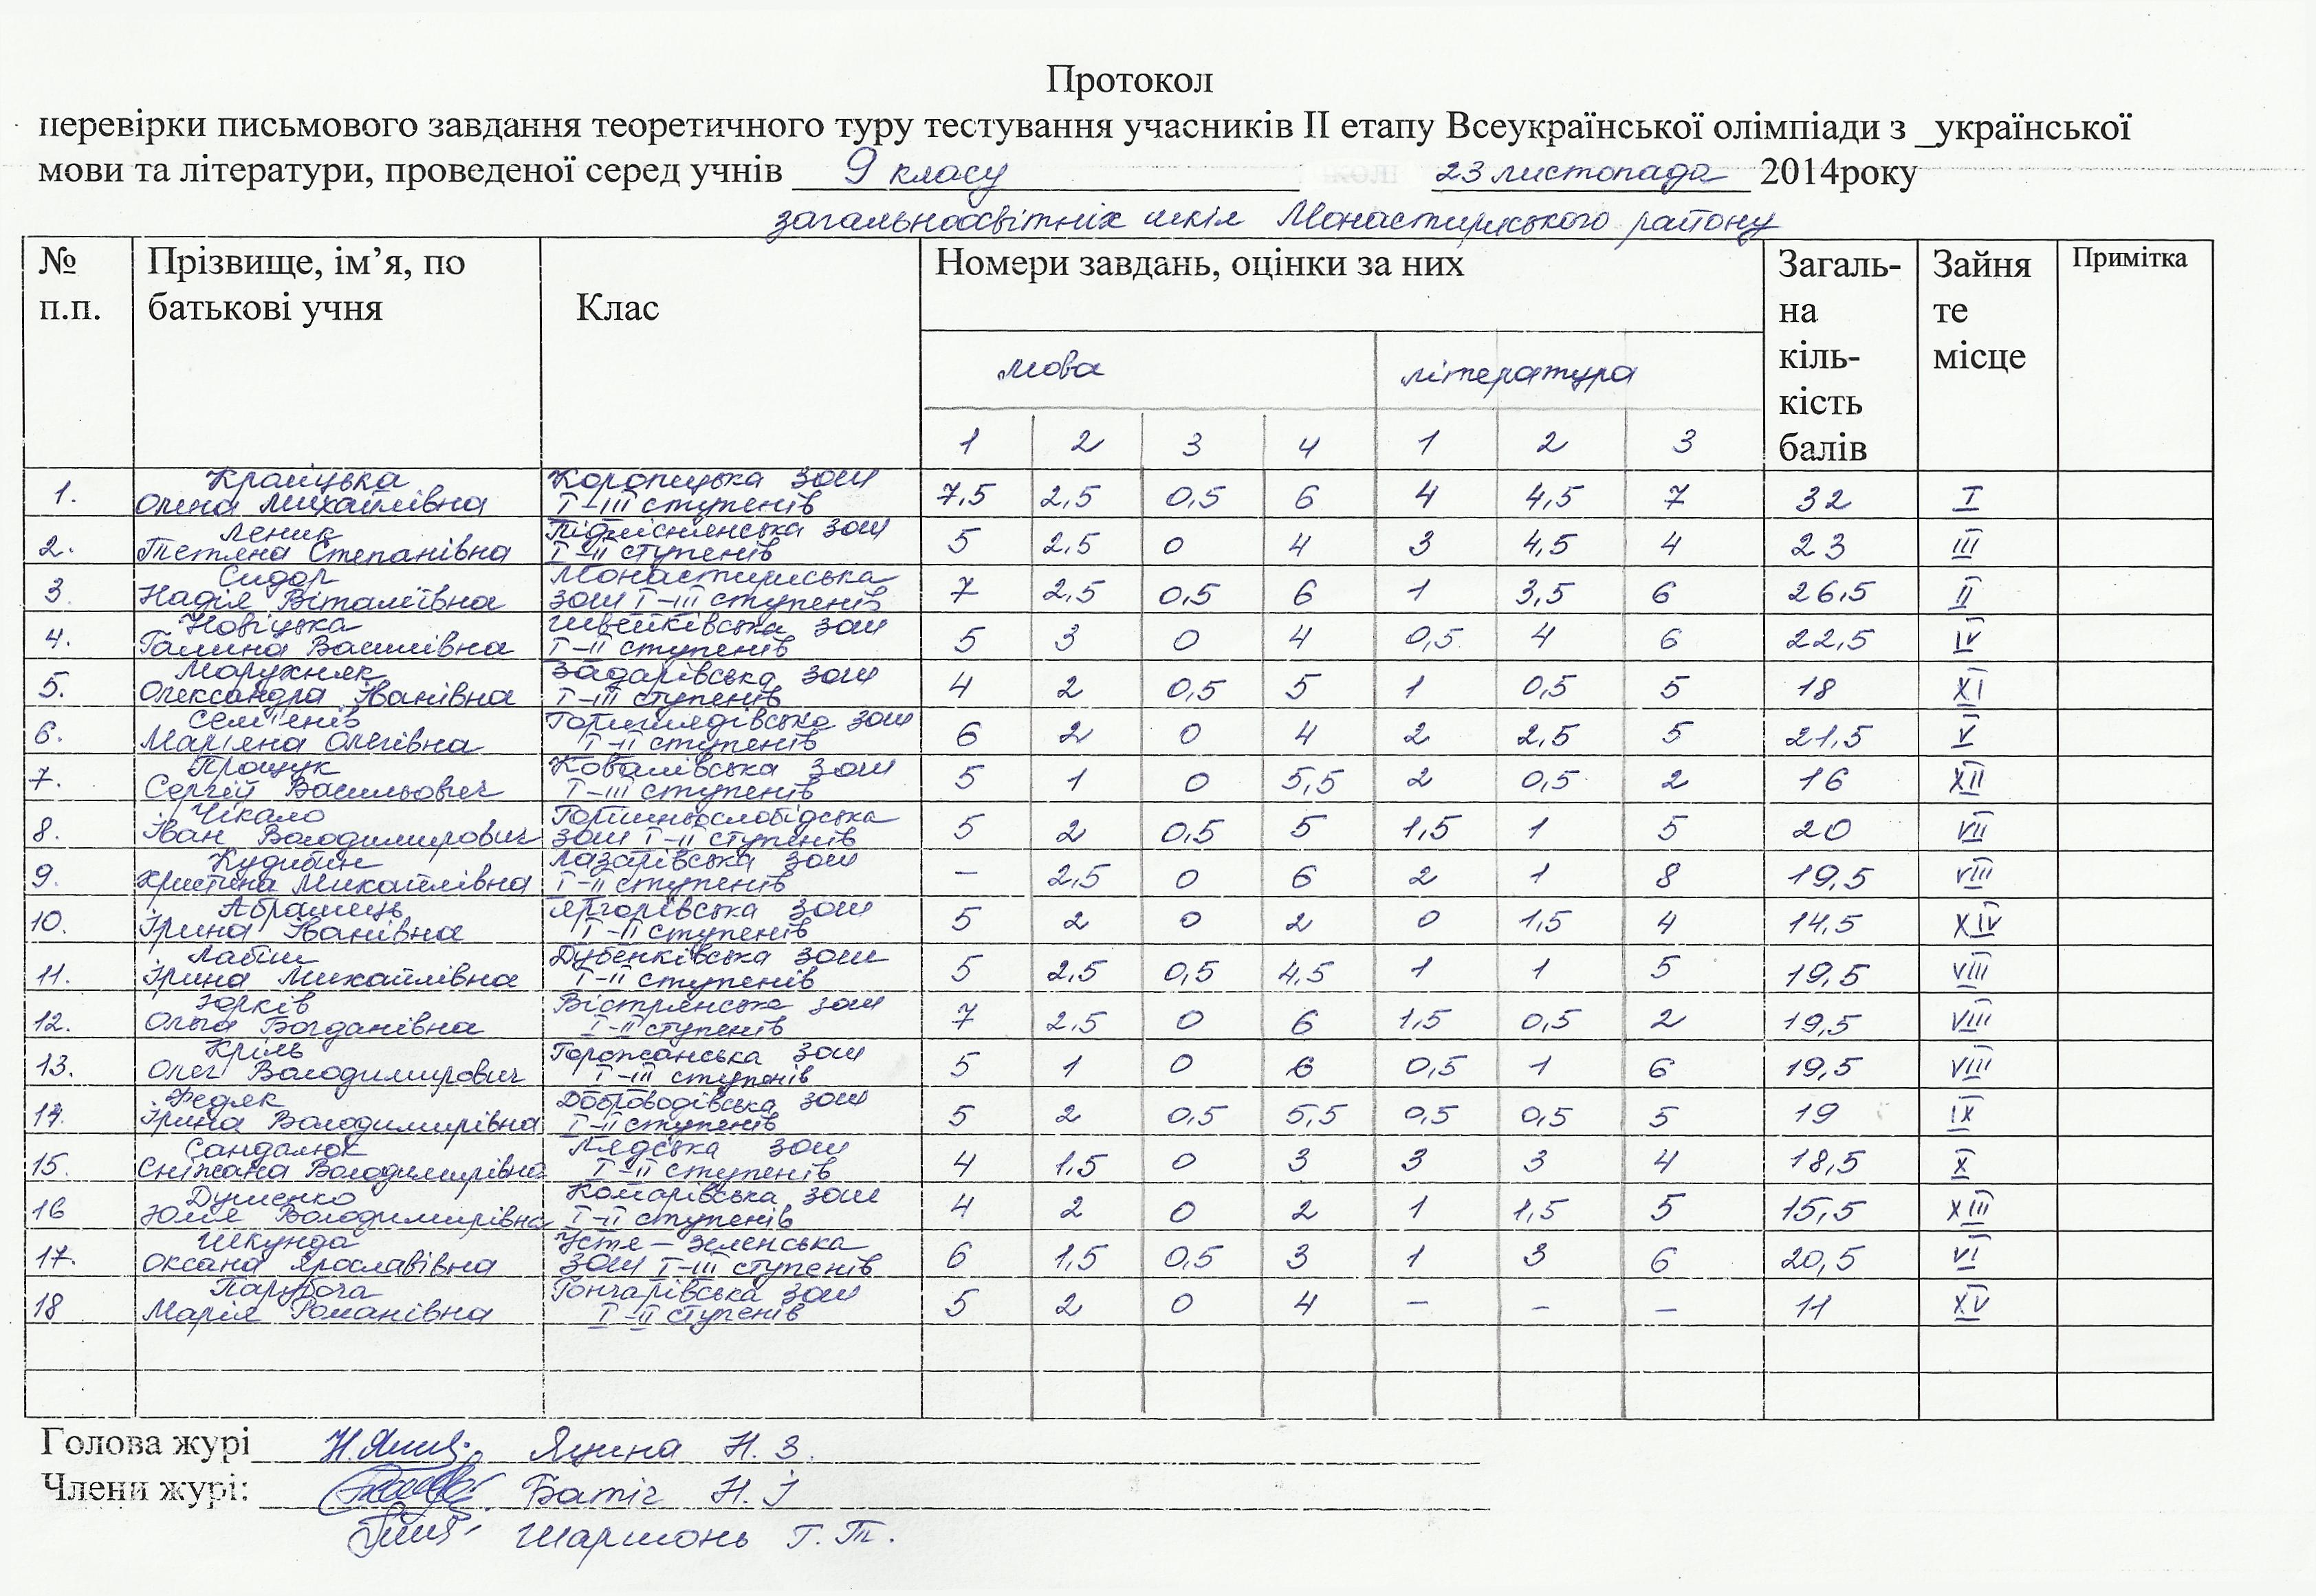 Протокол
перевірки письмового завдання теоретичного туру тестування учасників ІІ етапу Всеукраїнської олімпіади з _української
мови та літератури, проведеної серед учнів 9 класу 23 листопада 2014року
загальноосвітніх шкіл Монастириського району
№ п.п. Прізвище, ім’я, по батькові учня Клас Номери завдань, оцінки за них Загаль-на кіль-кість балів Зайня те місце Примітка
мова література
1 2 3 4 1 2 3
1. Олена Михайлівна Коропецька ЗОШ І-ІІІ ступенів 7,5 2,5 0,5 6 4 4,5 7 32 І
2. Леник Тетяна Степанівна ЗОШ І-ІІ ступенів 5 2,5 0 4 3 4,5 4 23 ІІІ
3. Сидор Надія Віталіївна Монастириська ЗОШ І-ІІІ ступенів 7 2,5 0,5 6 1 3,5 6 26,5 ІІ
4. Новіцька Галина Василівна Швейківська ЗОШ І-ІІ ступенів 5 3 0 4 0,5 4 6 22,5 IV
5. Марухняк Олександра Іванівна Задарівська ЗОШ І-ІІІ ступенів 4 2 0,5 5 1 0,5 5 18 XI
6. Сем'янів Мар'яна Олегівна Горигляdівська ЗОШ І-ІІ ступенів 6 2 0 4 2 2,5 5 21,5 V
7. Прощук Сергій Васильович Ковалівська ЗОШ І-ІІІ ступенів 5 1 0 5,5 2 0,5 2 16 XII
8. Чікало Іван Володимирович Горішньослобідська ЗОШ І-ІІ ступенів 5 2 0,5 5 1,5 1 5 20 VII
9. Христина Михайлівна Лазарівська ЗОШ І-ІІ ступенів – 2,5 0 6 2 1 8 19,5 VIII
10. Абрамець Ірина Іванівна Яргорівська ЗОШ І-ІІ ступенів 5 2 0 2 0 1,5 4 14,5 XIV
11. Лабіш Ірина Михайлівна Дубенківська ЗОШ І-ІІ ступенів 5 2,5 0,5 4,5 1 1 5 19,5 VIII
12. Юрків Ольга Богданівна Вістрянська ЗОШ І-ІІ ступенів 7 2,5 0 6 1,5 0,5 2 19,5 VIII
13. Кріль Олег Володимирович Горожанська ЗОШ І-ІІІ ступенів 5 1 0 6 0,5 1 6 19,5 VIII
14. Федяк Ірина Володимирівна Доброводівська ЗОШ І-ІІ ступенів 5 2 0,5 5,5 0,5 0,5 5 19 IX
15. Сандалюк Сніжана Володимирівна Лядська ЗОШ І-ІІ ступенів 4 1,5 0 3 3 3 4 18,5 X
16 Юлія Володимирівна Комарівська ЗОШ І-ІІ ступенів 4 2 0 2 1 1,5 5 15,5 XIII
17. Шкунда Оксана Ярославівна Устя-Зеленська ЗОШ І-ІІІ ступенів 6 1,5 0,5 3 1 3 6 20,5 VI
18 Парубоча Марія Романівна Гончарівська ЗОШ І-ІІ ступенів 5 2 0 4 – – – 11 XV
Голова журі Яцина Н. З.
Члени журі: Батіг Н. І
Шармонь Г. Т.